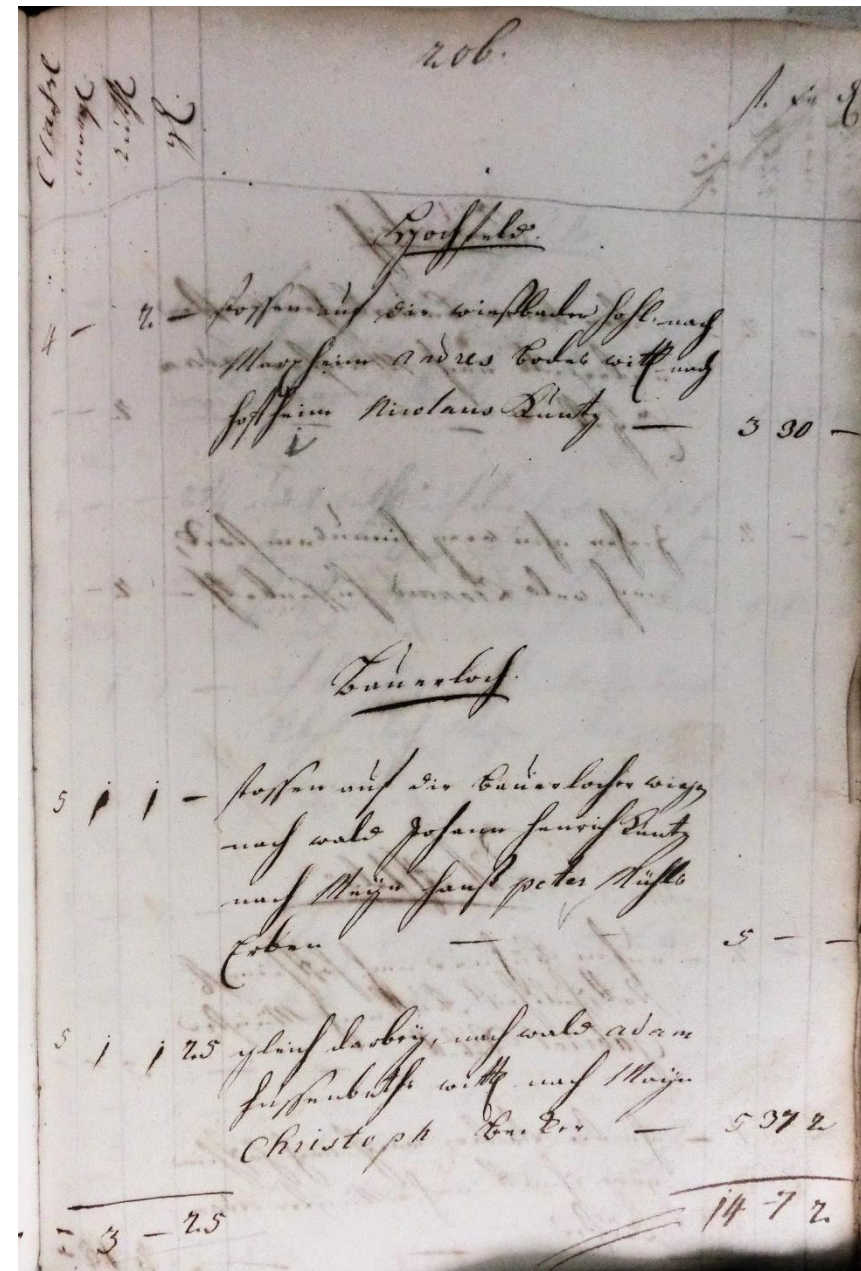 206.
Classe morge ruth
f. xr ₰
Hochfeld.
4 - 2 - stossen auf die wießbader hohl, nach
Marxheim andres Bodes witt. nach
hoffheim Nicolaus Kuntz — 3 30 —
Bauerloch.
5 1 1 - stossen auf die Bauerlocher wiesse
nach wald Johann Henrich Kuntz
nach Meyn hanß peter Kühls
Erben — 5 - —
5 1 1 25 gleich darbey, nach wald adam
witt. nach Mayn
Christoph Becker — 5 37 2
- 3 - 25 14 7 2